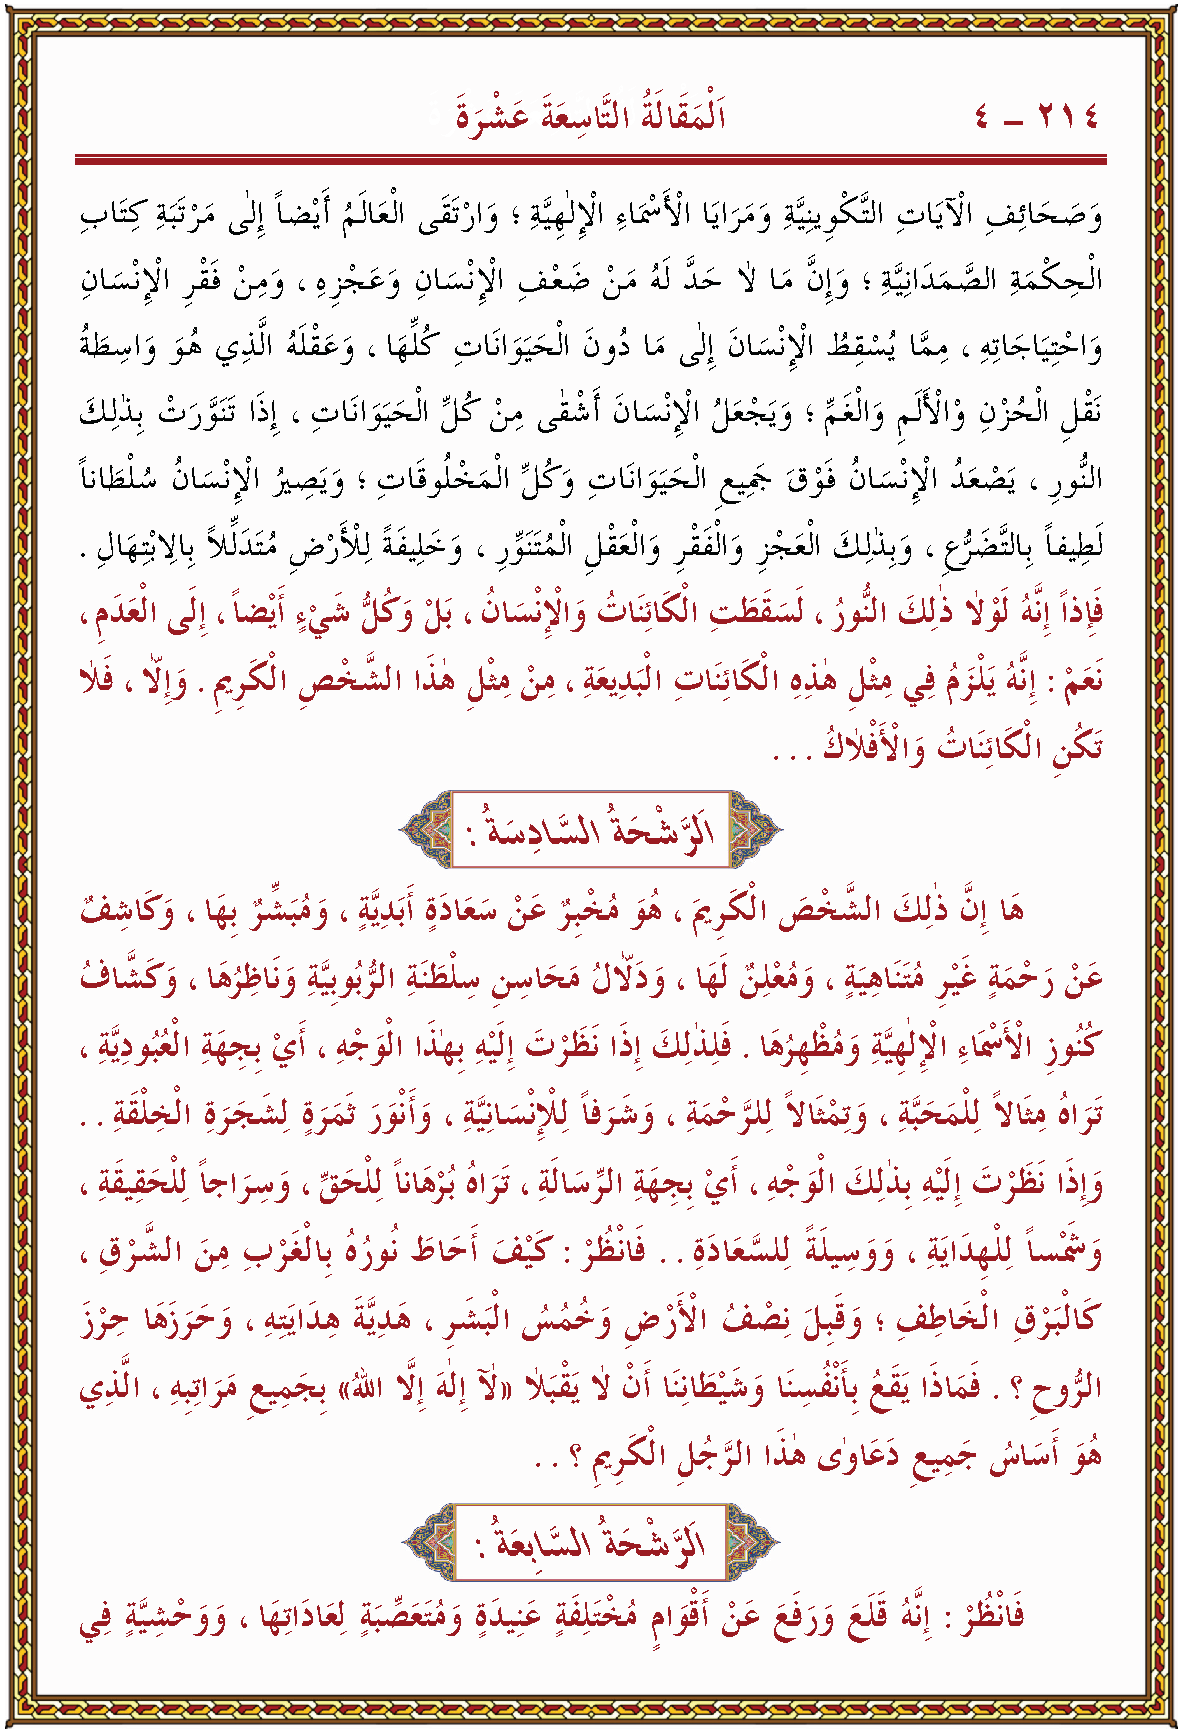 ٢١٤ – ٤
اَلْمَقَالَةُ التَّاسِعَةَ عَشْرَةَ
وَصَحَائِفِ الْآيَاتِ التَّكْوِينِيَّةِ وَمَرَايَا الْأَسْمَاءِ الْإِلٰهِيَّةِ ؛ وَارْتَقَى الْعَالَمُ أَيْضاً إِلٰى مَرْتَبَةِ كِتَابِ
الْحِكْمَةِ الصَّمَدَانِيَّةِ ؛ وَإِنَّ مَا لٰا حَدَّ لَهُ مَنْ ضَعْفِ الْإِنْسَانِ وَعَجْزِهِ ، وَمِنْ فَقْرِ الْإِنْسَانِ
وَاحْتِيَاجَاتِهِ ، مِمَّا يُسْقِطُ الْإِنْسَانَ إِلٰى مَا دُونَ الْحَيَوَانَاتِ كُلِّهَا ، وَعَقْلَهُ الَّذِي هُوَ وَاسِطَةُ
نَقْلِ الْحُزْنِ وْالْأَلَمِ وَالْغَمِّ ؛ وَيَجْعَلُ الْإِنْسَانَ أَشْقٰى مِنْ كُلِّ الْحَيَوَانَاتِ ، إِذَا تَنَوَّرَتْ بِذٰلِكَ
النُّورِ ، يَصْعَدُ الْإِنْسَانُ فَوْقَ جَمِيعِ الْحَيَوَانَاتِ وَكُلِّ الْمَخْلُوقَاتِ ؛ وَيَصِيرُ الْإِنْسَانُ سُلْطَاناً
لَطِيفاً بِالتَّضَرُّعِ ، وَبِذٰلِكَ الْعَجْزِ وَالْفَقْرِ وَالْعَقْلِ الْمُتَنَوِّرِ ، وَخَلِيفَةً لِلْأَرْضِ مُتَدَلِّلاً بِالِابْتِهَالِ .
فَإِذاً إِنَّهُ لَوْلٰا ذٰلِكَ النُّورُ ، لَسَقَطَتِ الْكَائِنَاتُ وَالْإِنْسَانُ ، بَلْ وَكُلُّ شَيْءٍ أَيْضاً ، إِلَى الْعَدَمِ ،
نَعَمْ : إِنَّهُ يَلْزَمُ فِي مِثْلِ هٰذِهِ الْكَائِنَاتِ الْبَدِيعَةِ ، مِنْ مِثْلِ هٰذَا الشَّخْصِ الْكَرِيمِ . وَإِلّٰا ، فَلٰا
تَكُنِ الْكَائِنَاتُ وَالْأَفْلٰاكُ . . .
اَلرَّشْحَةُ السَّادِسَةُ :
هَا إِنَّ ذٰلِكَ الشَّخْصَ الْكَرِيمَ ، هُوَ مُخْبِرٌ عَنْ سَعَادَةٍ أَبَدِيَّةٍ ، وَمُبَشِّرٌ بِهَا ، وَكَاشِفٌ
عَنْ رَحْمَةٍ غَيْرِ مُتَنَاهِيَةٍ ، وَمُعْلِنٌ لَهَا ، وَدَلّٰالُ مَحَاسِنِ سِلْطَنَةِ الرُّبُوبِيَّةِ وَنَاظِرُهَا ، وَكَشَّافُ
كُنُوزِ الْأَسْمَاءِ الْإِلٰهِيَّةِ وَمُظْهِرُهَا . فَلِذٰلِكَ إِذَا نَظَرْتَ إِلَيْهِ بِهٰذَا الْوَجْهِ ، أَيْ بِجِهَةِ الْعُبُودِيَّةِ ،
تَرَاهُ مِثَالاً لِلْمَحَبَّةِ ، وَتِمْثَالاً لِلرَّحْمَةِ ، وَشَرَفاً لِلْإِنْسَانِيَّةِ ، وَأَنْوَرَ ثَمَرَةٍ لِشَجَرَةِ الْخِلْقَةِ . .
وَإِذَا نَظَرْتَ إِلَيْهِ بِذٰلِكَ الْوَجْهِ ، أَيْ بِجِهَةِ الرِّسَالَةِ ، تَرَاهُ بُرْهَاناً لِلْحَقِّ ، وَسِرَاجاً لِلْحَقِيقَةِ ،
وَشَمْساً لِلْهِدَايَةِ ، وَوَسِيلَةً لِلسَّعَادَةِ . . فَانْظُرْ : كَيْفَ أَحَاطَ نُورُهُ بِالْغَرْبِ مِنَ الشَّرْقِ ،
كَالْبَرْقِ الْخَاطِفِ ؛ وَقَبِلَ نِصْفُ الْأَرْضِ وَخُمُسُ الْبَشَرِ ، هَدِيَّةَ هِدَايَتِهِ ، وَحَرَزَهَا حِرْزَ
الرُّوحِ ؟ . فَمَاذَا يَقَعُ بِأَنْفُسِنَا وَشَيْطَانِنَا أَنْ لٰا يَقْبَلٰا «لٰآ إِلٰهَ إِلَّا اللهُ» بِجَمِيعِ مَرَاتِبِهِ ، الَّذِي
هُوَ أَسَاسُ جَمِيعِ دَعَاوٰى هٰذَا الرَّجُلِ الْكَرِيمِ ؟ . .
اَلرَّشْحَةُ السَّابِعَةُ :
فَانْظُرْ : إِنَّهُ قَلَعَ وَرَفَعَ عَنْ أَقْوَامٍ مُخْتَلِفَةٍ عَنِيدَةٍ وَمُتَعَصِّبَةٍ لِعَادَاتِهَا ، وَوَحْشِيَّةٍ فِي